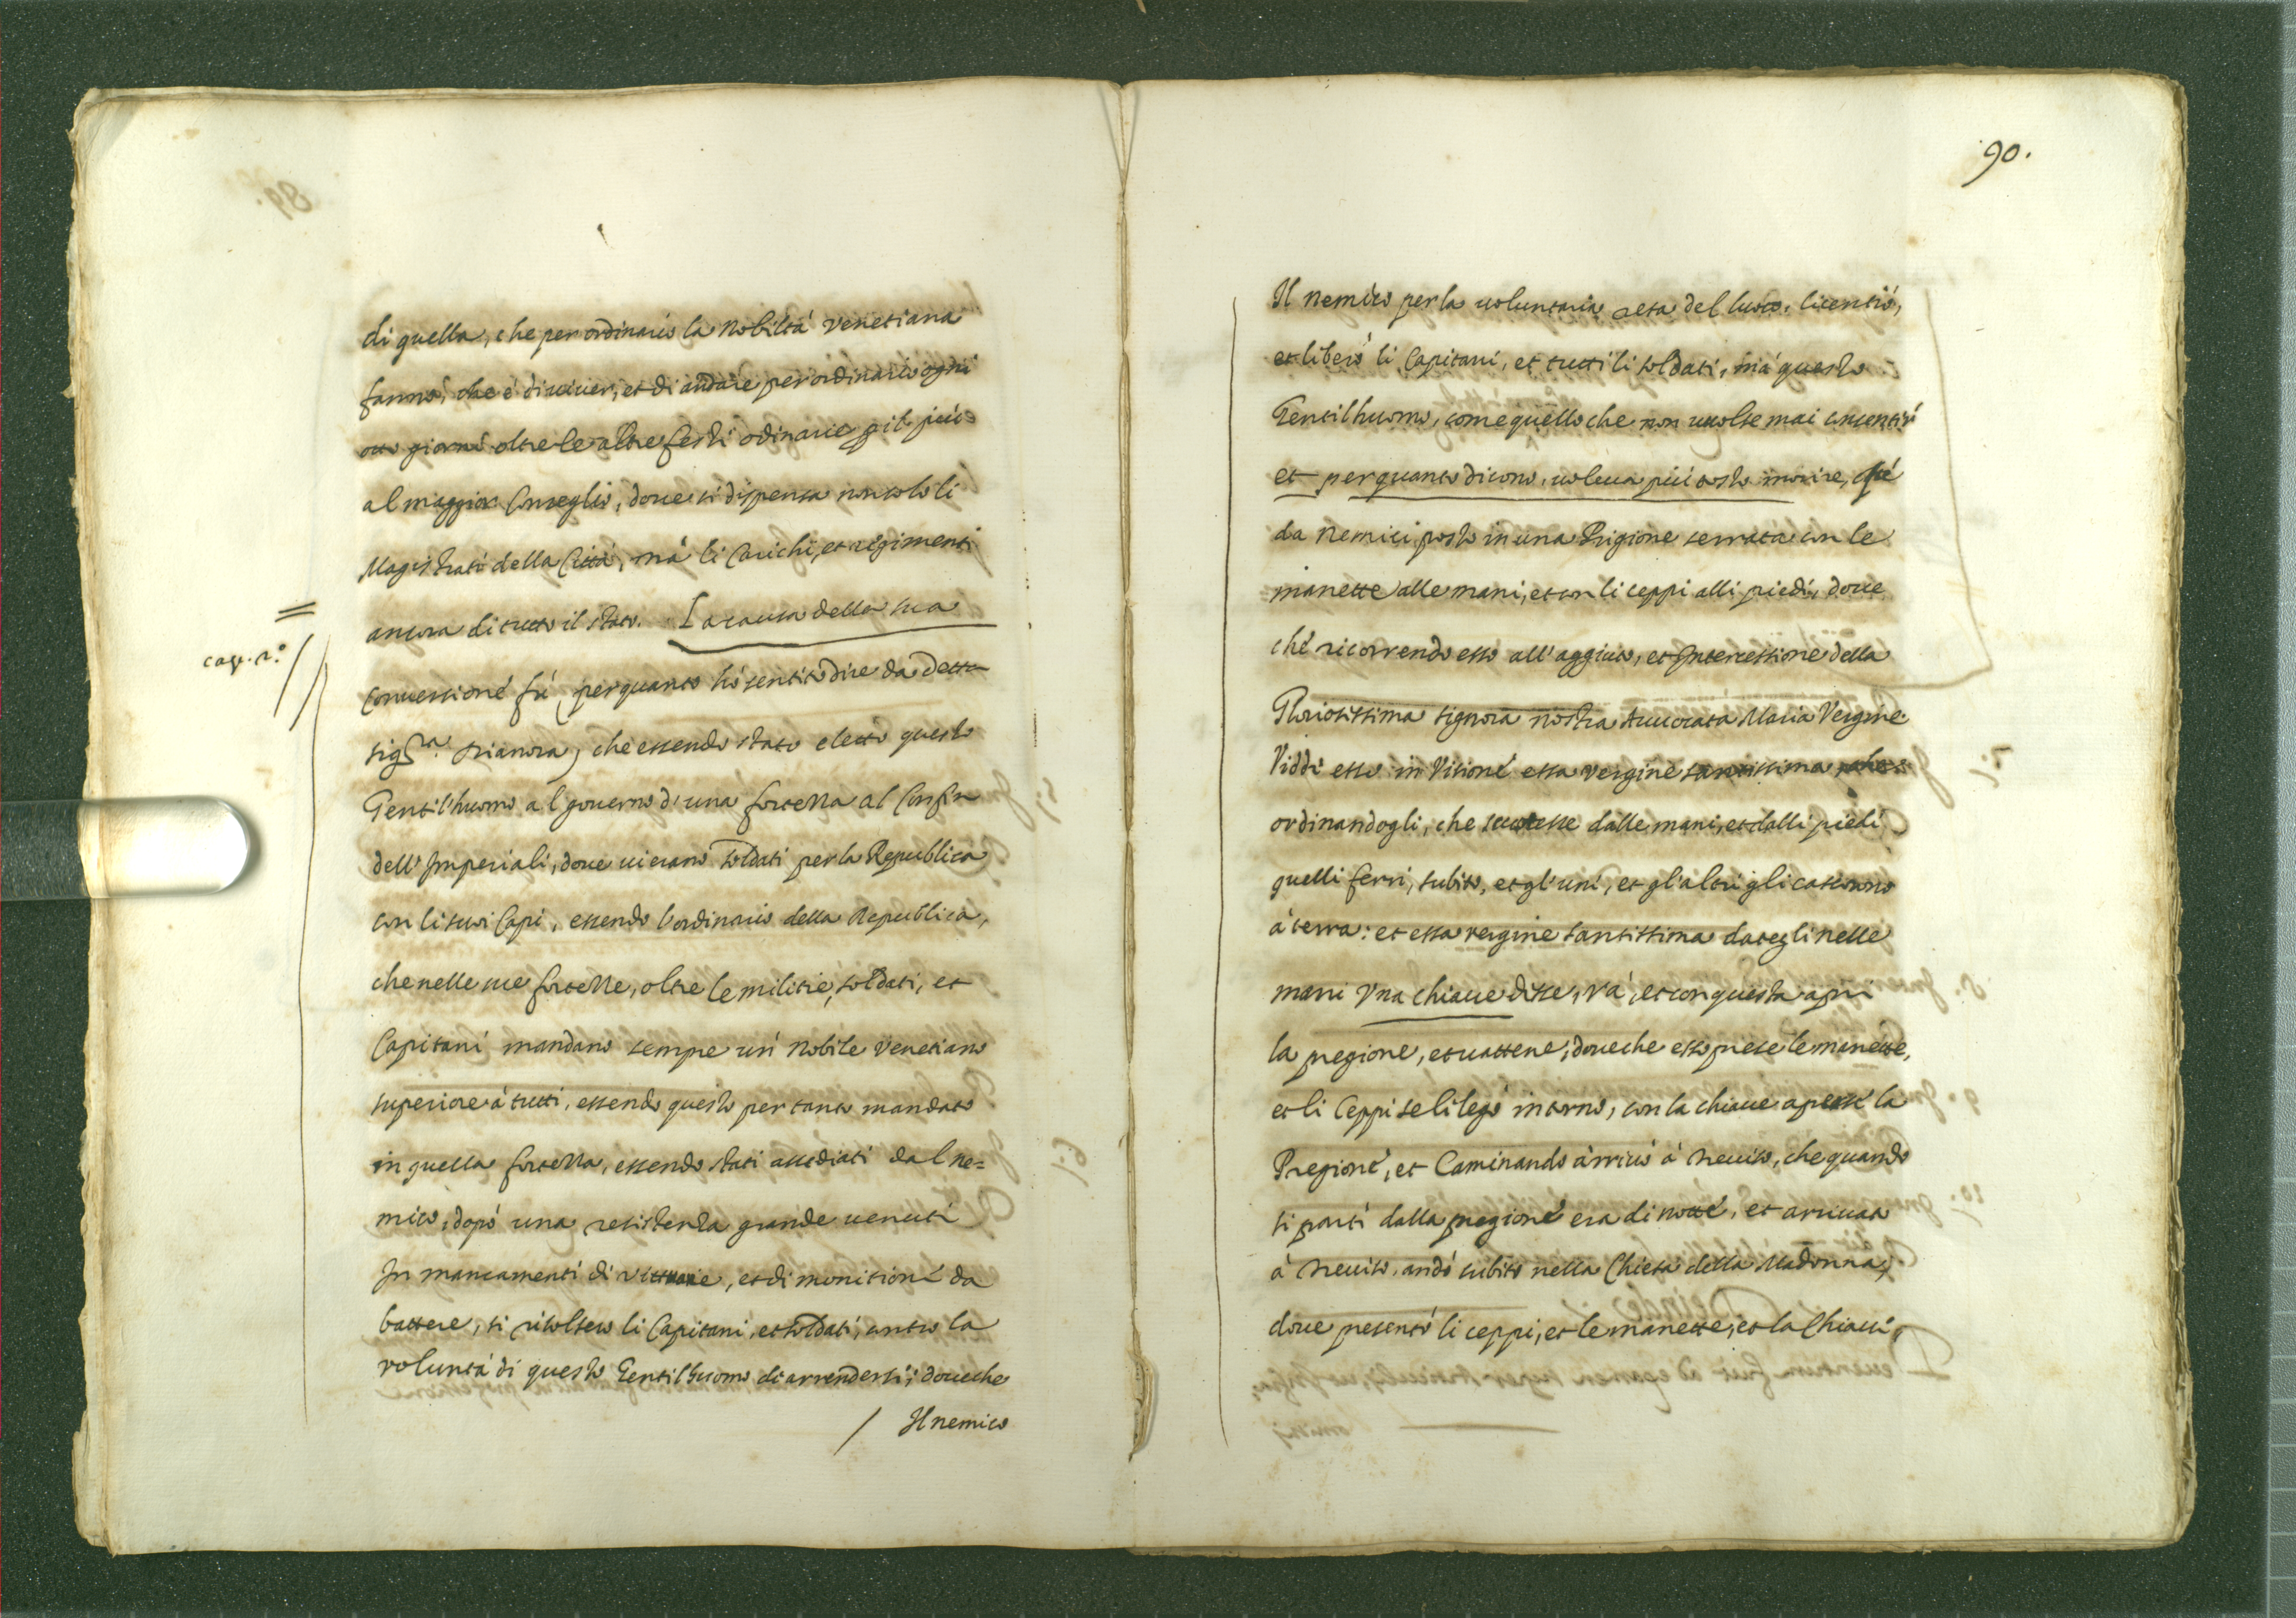 di quella, che per ordinario la Nobiltá Venetiana
fanno, che é di viuer, et di andare per ordinario ogni
otto giorni oltre le altre festi odinarie p il piú
al maggior Conseglio, doue si dispensa non solo li
Magistrati della Cittá, má li Carichi, et regimenti
ancora di tutto il stato. La causa della sua
cap. 2.º
Conuersione fú, per quanto hó sentito dire da detta
sig.ra Dianora, che essendo stato eletto questo
Gentil'huomo al gouerno d'una fortezza al Confin
dell'Imperiali, doue vi erano soldati per la Republica
con li suoi Capi, essendo l'ordinario della Republica,
che nelle sue fortezze, oltre le militie, soldati, et
Capitani mandano sempre un Nobile Venetiano
superiore á tutti, essendo questo per tanto mandato
in quella fortezza, essendo stati assediati dal ne=
mico, dopó una resistenza grande uenuti
In mancamenti di vittuarie, et di monitioni da
battere, si risolsero li Capitani, et soldati, contro la
voluntá di questo Gentil'huomo di arrendersi; doueche
/ Il nemico
90.
Il Nemico per la uoluntaria resa del luoco, licentió,
et liberó li Capitani, et tutti li soldati, má questo
Gentil'huomo, come quello che non uuolse mai consentir
et per quanto dicono, uoleua piú tosto morire, fú
da Nemici posto in una Prigione serrata con le
manette alle mani, et con li ceppi alli piedi, doue
ché ricorrendo esso all'aggiuto, et Intercessione della
Gloriosissima signora nostra Auuocata Maria Vergine
Viddé esso in Visioné essa Vergine santissima
ordinandogli, che scuotesse dalle mani, et dalli piedi
quelli ferri, subito, et gl'uni, et gl'altri gli cascorono
á terra: et essa vergine santissima dategli nelle
mani Vna chiaue disse, vá, et con questa apri
la pregione, et uattene; doueche esso prese le manette,
et li Ceppi se li legó intorno, con la chiaue aperse la
Pregioné, et Caminando arriuó á Treuiso, che quando
si partí dalla pregioné era di notte, et arriuato
á Treuiso, andó subito nella Chiesa della Madonna,
doue presentó li ceppi, et le manette, et la Chiaui,